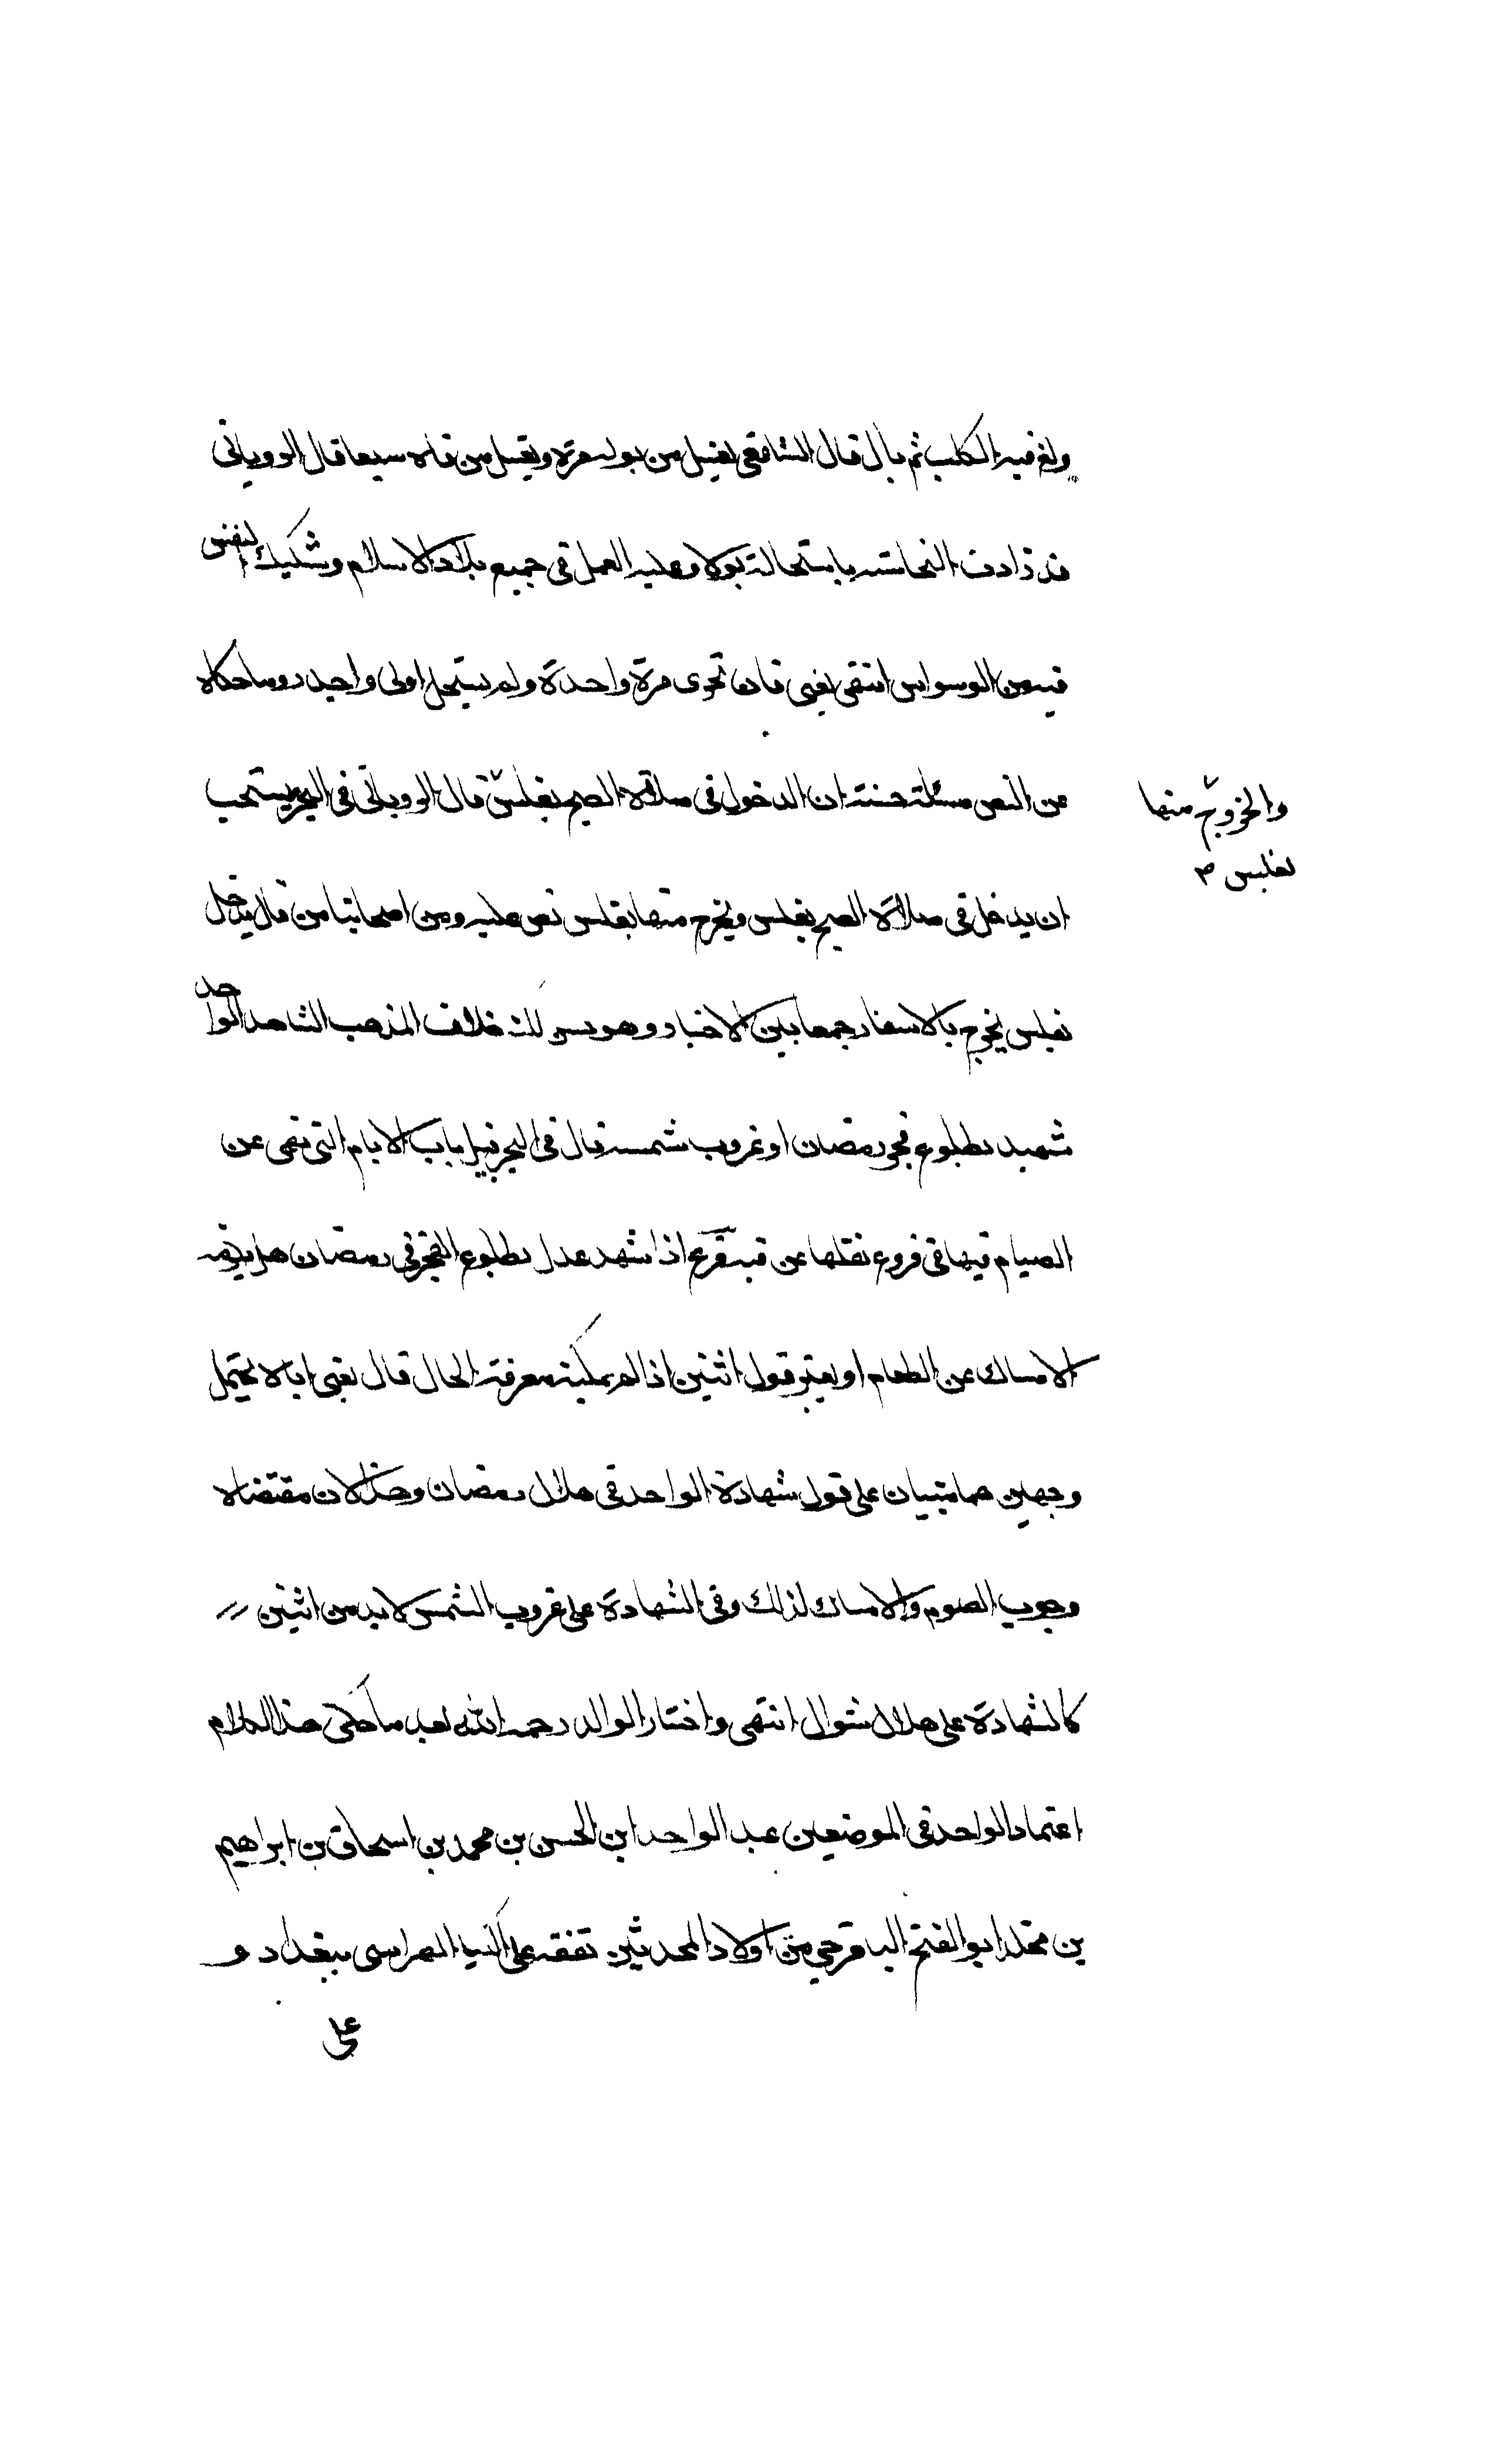 ولغ فيه الكلب ثم بال قال الشافعي يغسل من بوله مرة ويغسل من فاه سبعا قال الروياني
قد زادت النجاسة باستحالة بولا وعليه العمل في جميع بلاد الاسلام وتشكيك النفس
فيه من الوسواس انتهى يعني فانها تحوى مرة واحدة ولم يستحل اولى واجدر وما حكاه
عن النص مسئلة حسنة ان الدخول في صلاة الصبح بغلس قال الروياني في البحر يستحب
والخروج منها
بغلس
ان يدخل في صلاة الصبح بغلس ويخرج منها بغلس نص عليه ومن اصحابنا من قال يدخل
بغلس يخرج بالاسفار جمعا بين الاخبار وهو خلاف المذهب الشاهد الواحد
شهيد بطلوع فجر رمضان او غروب شمسه قال في البحر قبيل باب الايام التي نهى عن
الصيام فيها في فروع نقلها عن فرع اذا شهد عدل بطلوع الفجر في رمضان هل يلزمه
الامساك عن الطعام او يعتبر قول اثنين اذا لم يمكنه معرفة الحال قال يعني اباه يحتمل
وجهين هما مبنيان على قبول شهادة الواحد في هلال رمضان وهذا لان مقتضاه
وجوب الصوم والامساك لذلك وفي الشهادة على غروب الشمس لا بد من اثنين
كالشهادة على هلال شوال انتهى واختار الوالد رحمه الله بعد ما حكى هذا الكلام
اعتماد الواحد في الموضعين عبد الواحد ابن الحسن بن محمد بن اسحاق بن ابراهيم
بن مخلد ابو الفتح الباقرحي من اولاد المحدثين تفقه على الكيا الهراسي ببغداد و
على